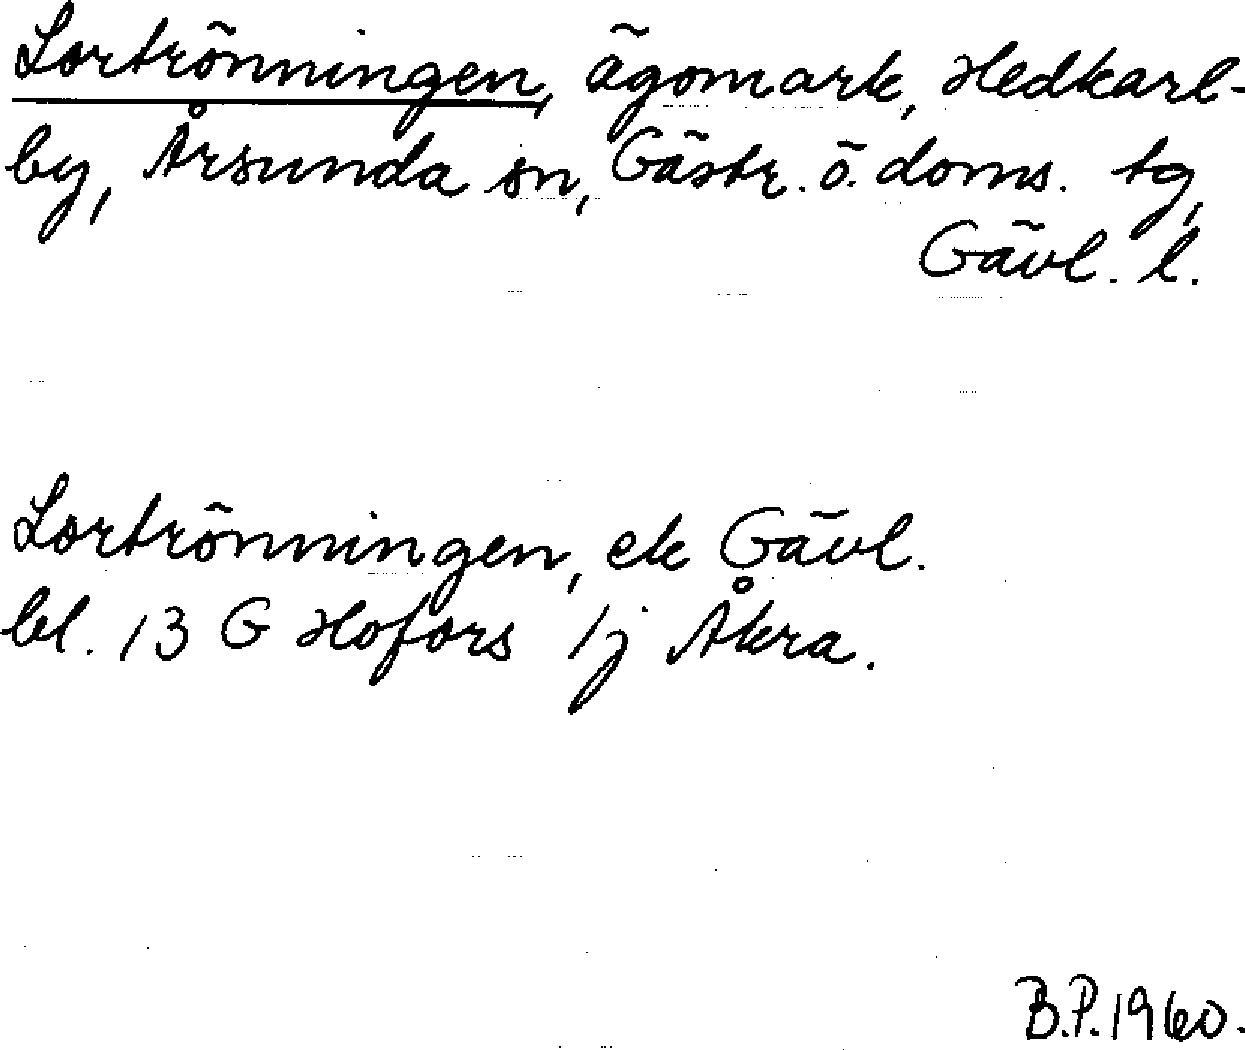 Lortrönningen, ägomark, Hedkarl-
by, Årsunda sn, Gästr. ö. doms. tg,
Gävl. l.
Lortrönningen, ek Gävl.
bl. 13 G Hofors 1j Åkra.
B.P. 1960.